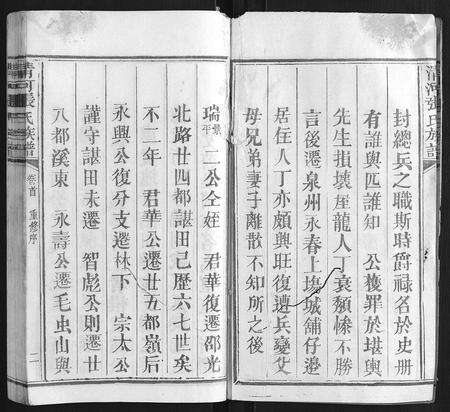 清河張氏族譜
封總兵之職斯時爵祿名於史册
有誰與匹誰知 公獲罪於堪輿
先生指壞塋龍人丁衰頹慘不勝
言後遷泉州永春上塲城舖仔邊
居住人丁亦頗興旺復遭兵變父
母兄弟妻子離散不知所之後
瑞 平二公仝姪 君華復遷邵光
北路廿四都諶田己歷六七世矣
不二年 君華公遷廿五都嶺后
永興公復分支遷林下 宗太公
謹守諶田未遷 智彪公則遷廿
八都溪東 永壽公遷毛虫山與
清河張氏族譜 卷首 重修序 二